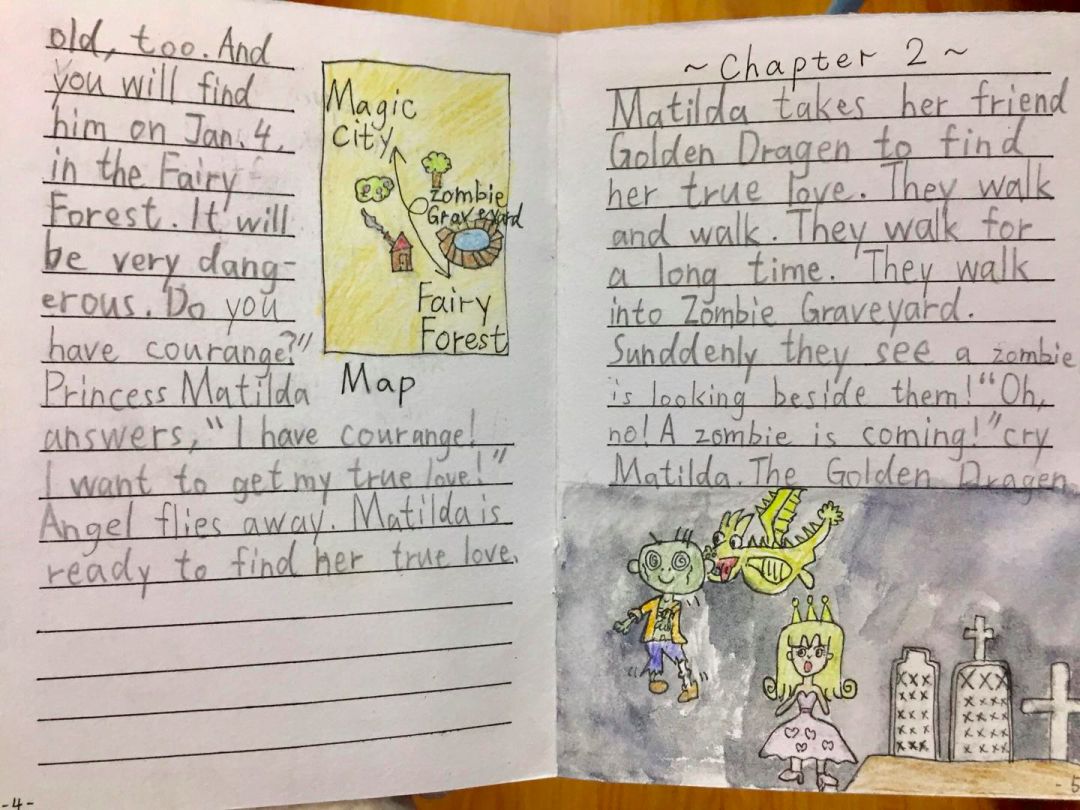 old, too. And
you will find
him on Jan. 4,
in the Fairy
Forest. It will
be very dang-
erous. Do you
have courange?"
Princess Matilda
answers, "I have courange!
I want to get my true love!"
Angel flies away. Matilda is
ready to find her true love.
Magic
City
Zombie
Graveyard
Fairy
Forest
Map
-4-
~ Chapter 2 ~
Matilda takes her friend
Golden Dragen to find
her true love. They walk
and walk. They walk for
a long time. They walk
into Zombie Graveyard.
Sunddenly they see a zombie
is looking beside them! "Oh,
no! A zombie is coming!" cry
Matilda. The Golden Dragen
-5